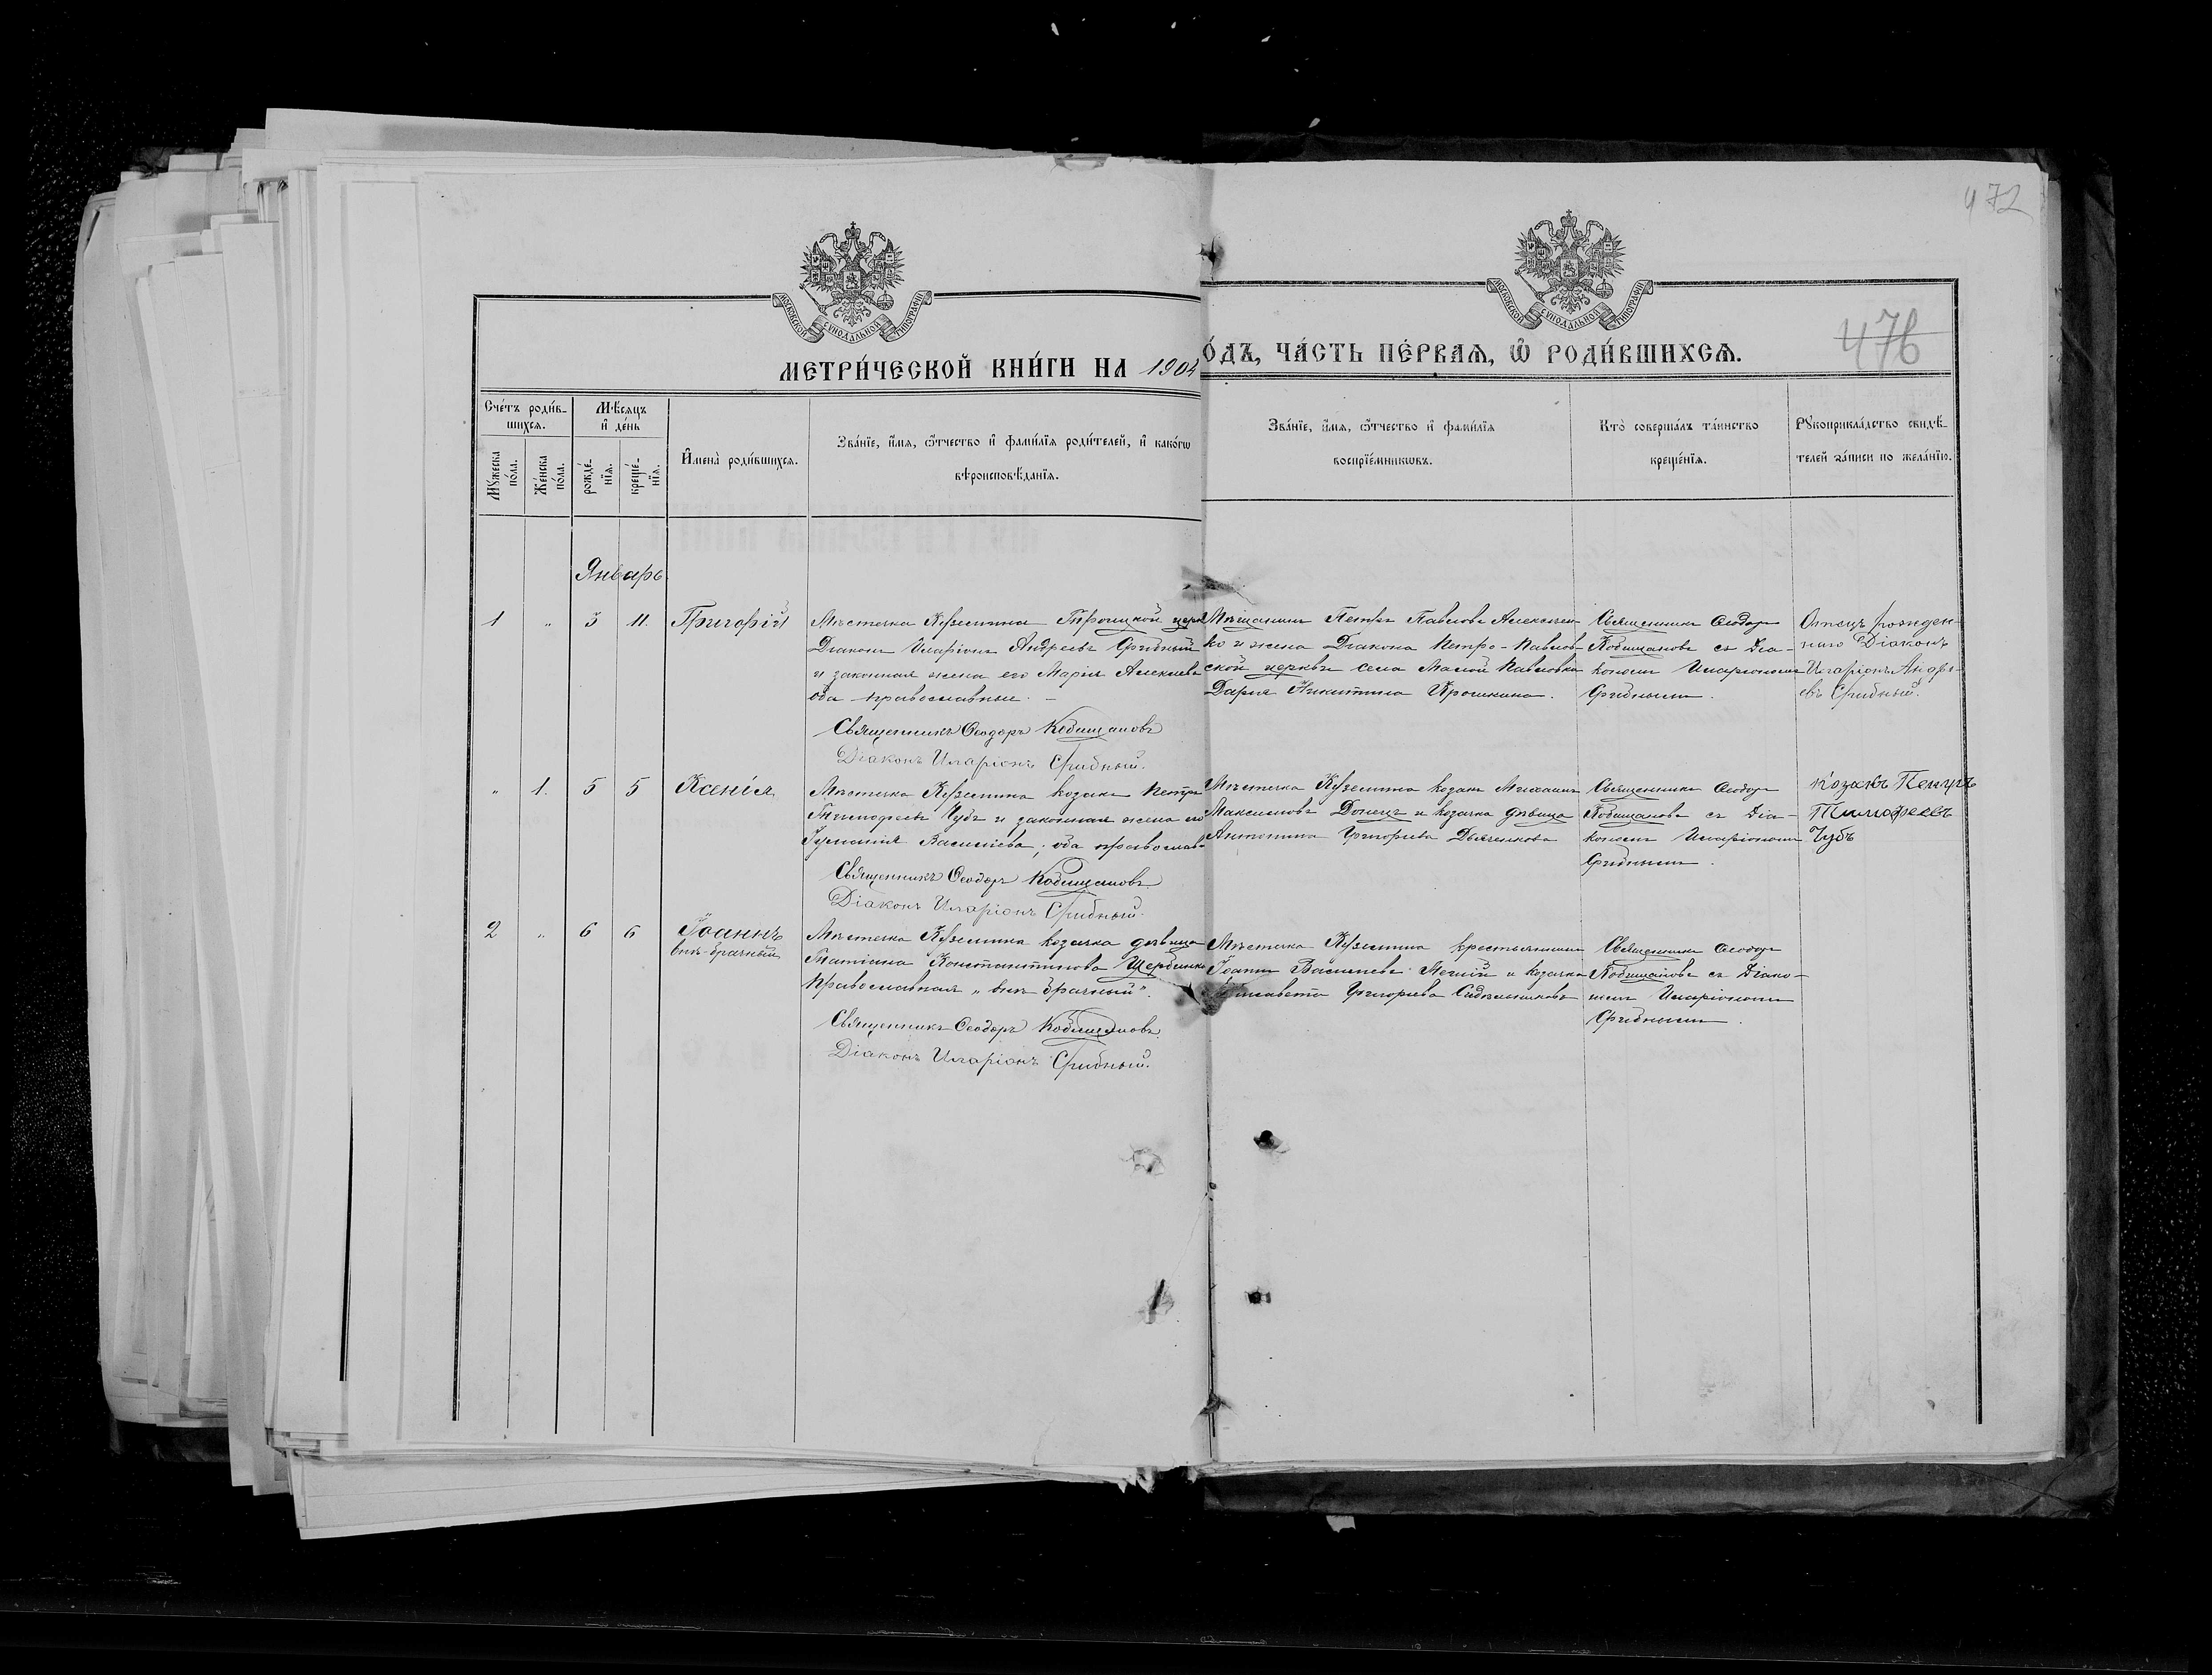 472
476
МОСКОВСКОЙ СУНОДАЛЬНОЙ ТИПОГРАФІИ
МОСКОВСКОЙ СУНОДАЛЬНОЙ ТИПОГРАФІИ
МЕТРИ́ЧЕСКОЙ КНИ́ГИ НА 1904
О́ДЪ, ЧА́СТЬ ПЕ́РВАѦ, Ѡ РОДИ́ВШИХСѦ.
Сче́тъ роди́в-
шихсѧ.
Мѣ́сѧцъ
и҆ де́нь
Мꙋ́жеска
по́ла.
Же́нска
по́ла.
рожде́-
нїѧ.
креще́-
нїѧ.
И҆мена̀ роди́вшихсѧ.
Зва́нїе, и҆́мѧ, ѻ҆́тчество и҆ фами́лїѧ роди́телей, и҆ како́гѡ
вѣроисповѣ́данїѧ.
Зва́нїе, и҆́мѧ, ѻ҆́тчество и҆ фами́лїѧ
воспрїе́мникѡвъ.
Кто̀ соверша́лъ та́инство
креще́нїѧ.
Рꙋкоприкла́дство свидѣ́-
телей за́писи по жела́нїю.
Январь
1 " 3 11. Григорій
Мѣстечка Куземина Троицкой церк
Діаконъ Иларіонъ Андреевъ Срибный
и законная жена его Марія Алексѣева
оба православные. –
Священникъ Ѳеодоръ Кобищановъ
Діаконъ Иларіонъ Срибный.
Мѣщанинъ Петръ Павловъ Алексѣен-
ко и жена Діакона Петро-Павлов-
ской церкви села Малой Павловки
Дарія Никитина Ярошкина.
Священникъ Ѳеодоръ
Кобищановъ съ Діа-
кономъ Иларіономъ
Срибнымъ.
Отецъ рожден-
наго Діаконъ
Иларіонъ Андре-
евъ Срибный.
" 1. 5 5 Ксенія
Мѣстечка Куземина козакъ Петръ
Тимоѳеевъ Чубъ и законная жена его
Васильева; оба православ-
Священникъ Ѳеодоръ Кобищановъ
Діаконъ Иларіонъ Срибный.
Мѣстечка Куземина козакъ Михаилъ
Максимовъ Донецъ и козачка дѣвица
Антонина Григорьева Дьяченкова
Священникъ Ѳеодоръ
Кобищановъ съ Діа-
кономъ Иларіономъ
Срибнымъ.
Козакъ Петръ
Тимофеевъ
Чубъ
2 " 6 6 Іоаннъ
внѣ-брачный
Мѣстечка Куземина козачка дѣвица
Татіана Константинова Щербинко
Православная „внѣ брачный".
Священникъ Ѳеодоръ Кобищановъ
Діаконъ Иларіонъ Срибный.
Мѣстечка Куземина крестьянинъ
Іоаннъ Васильевъ и козачка
Елисавета Григорьева
Священникъ Ѳеодоръ
Кобищановъ съ Діако-
номъ Иларіономъ
Срибнымъ.